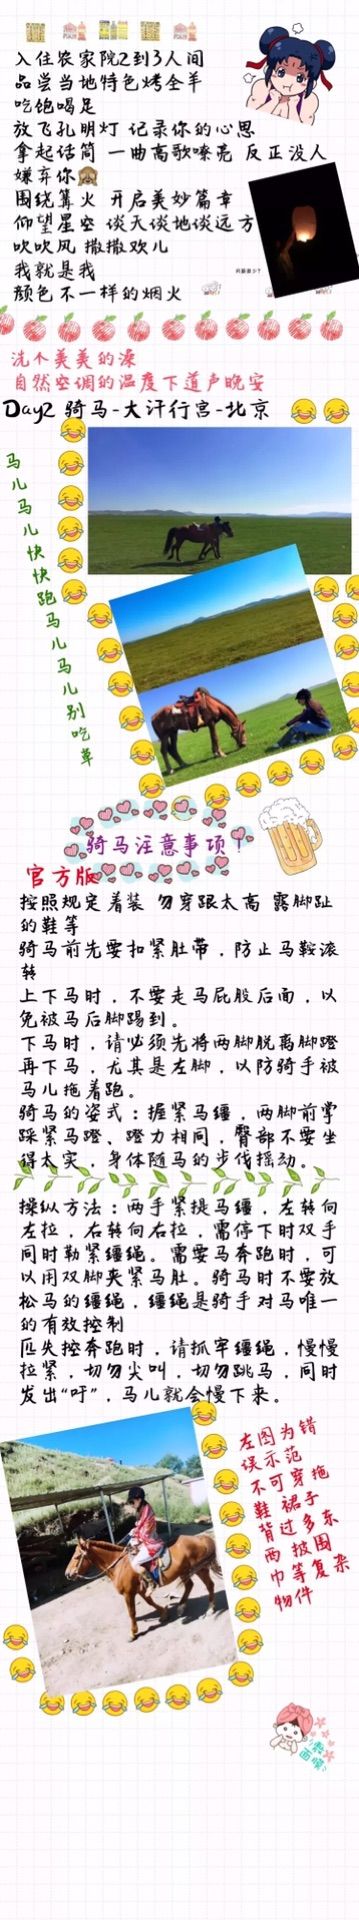 入住农家院2到3人间
品尝当地特色烤全羊
吃饱喝足
放飞孔明灯 记录你的心思
拿起话筒 一曲高歌嘹亮 反正没人
嫌弃你
围绕篝火 开启美妙篇章
仰望星空 谈天谈地谈远方
吹吹风 撒撒欢儿
我就是我
颜色不一样的烟火
洗个美美的澡
自然空调的温度下道声晚安
Day2 骑马-大汗行宫-北京
马儿马儿快快跑马儿马儿别吃草
骑马注意事项！
官方版
按照规定着装 勿穿跟太高 露脚趾
的鞋等
骑马前先要扣紧肚带，防止马鞍滚
转
上下马时，不要走马屁股后面，以
免被马后脚踢到。
下马时，请必须先将两脚脱离脚蹬
再下马，尤其是左脚，以防骑手被
马儿拖着跑。
骑马的姿式：握紧马缰，两脚前掌
踩紧马蹬、蹬力相同，臀部不要坐
得太实，身体随马的步伐摇动。
操纵方法：两手紧提马缰，左转向
左拉，右转向右拉，需停下时双手
同时勒紧缰绳。需要马奔跑时，可
以用双脚夹紧马肚。骑马时不要放
松马的缰绳，缰绳是骑手对马唯一
的有效控制
匹失控奔跑时，请抓牢缰绳，慢慢
拉紧，切勿尖叫，切勿跳马，同时
发出“吁”，马儿就会慢下来。
左图为错
误示范
不可穿拖
鞋 裙子
背过多东
西 披围
巾等复杂
物件